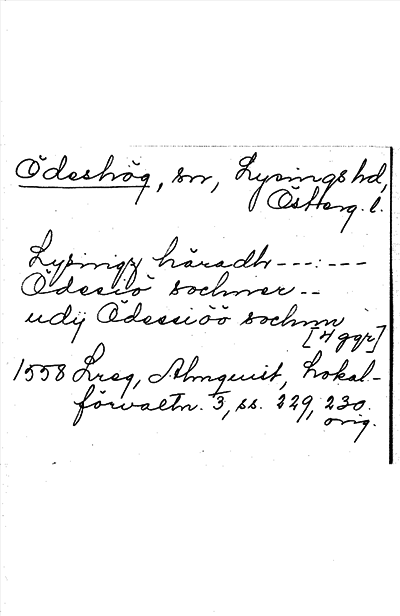 Ödeshög, sn, Lysings hd,
Österg. l.
Lysingz häradh ---:---
Ödesiö sochner --
udij Ödessiöö sochnn
[4 ggr]
1558 Lreg, Almquist, Lokal-
förvaltn. 3, ss. 229, 230.
orig.